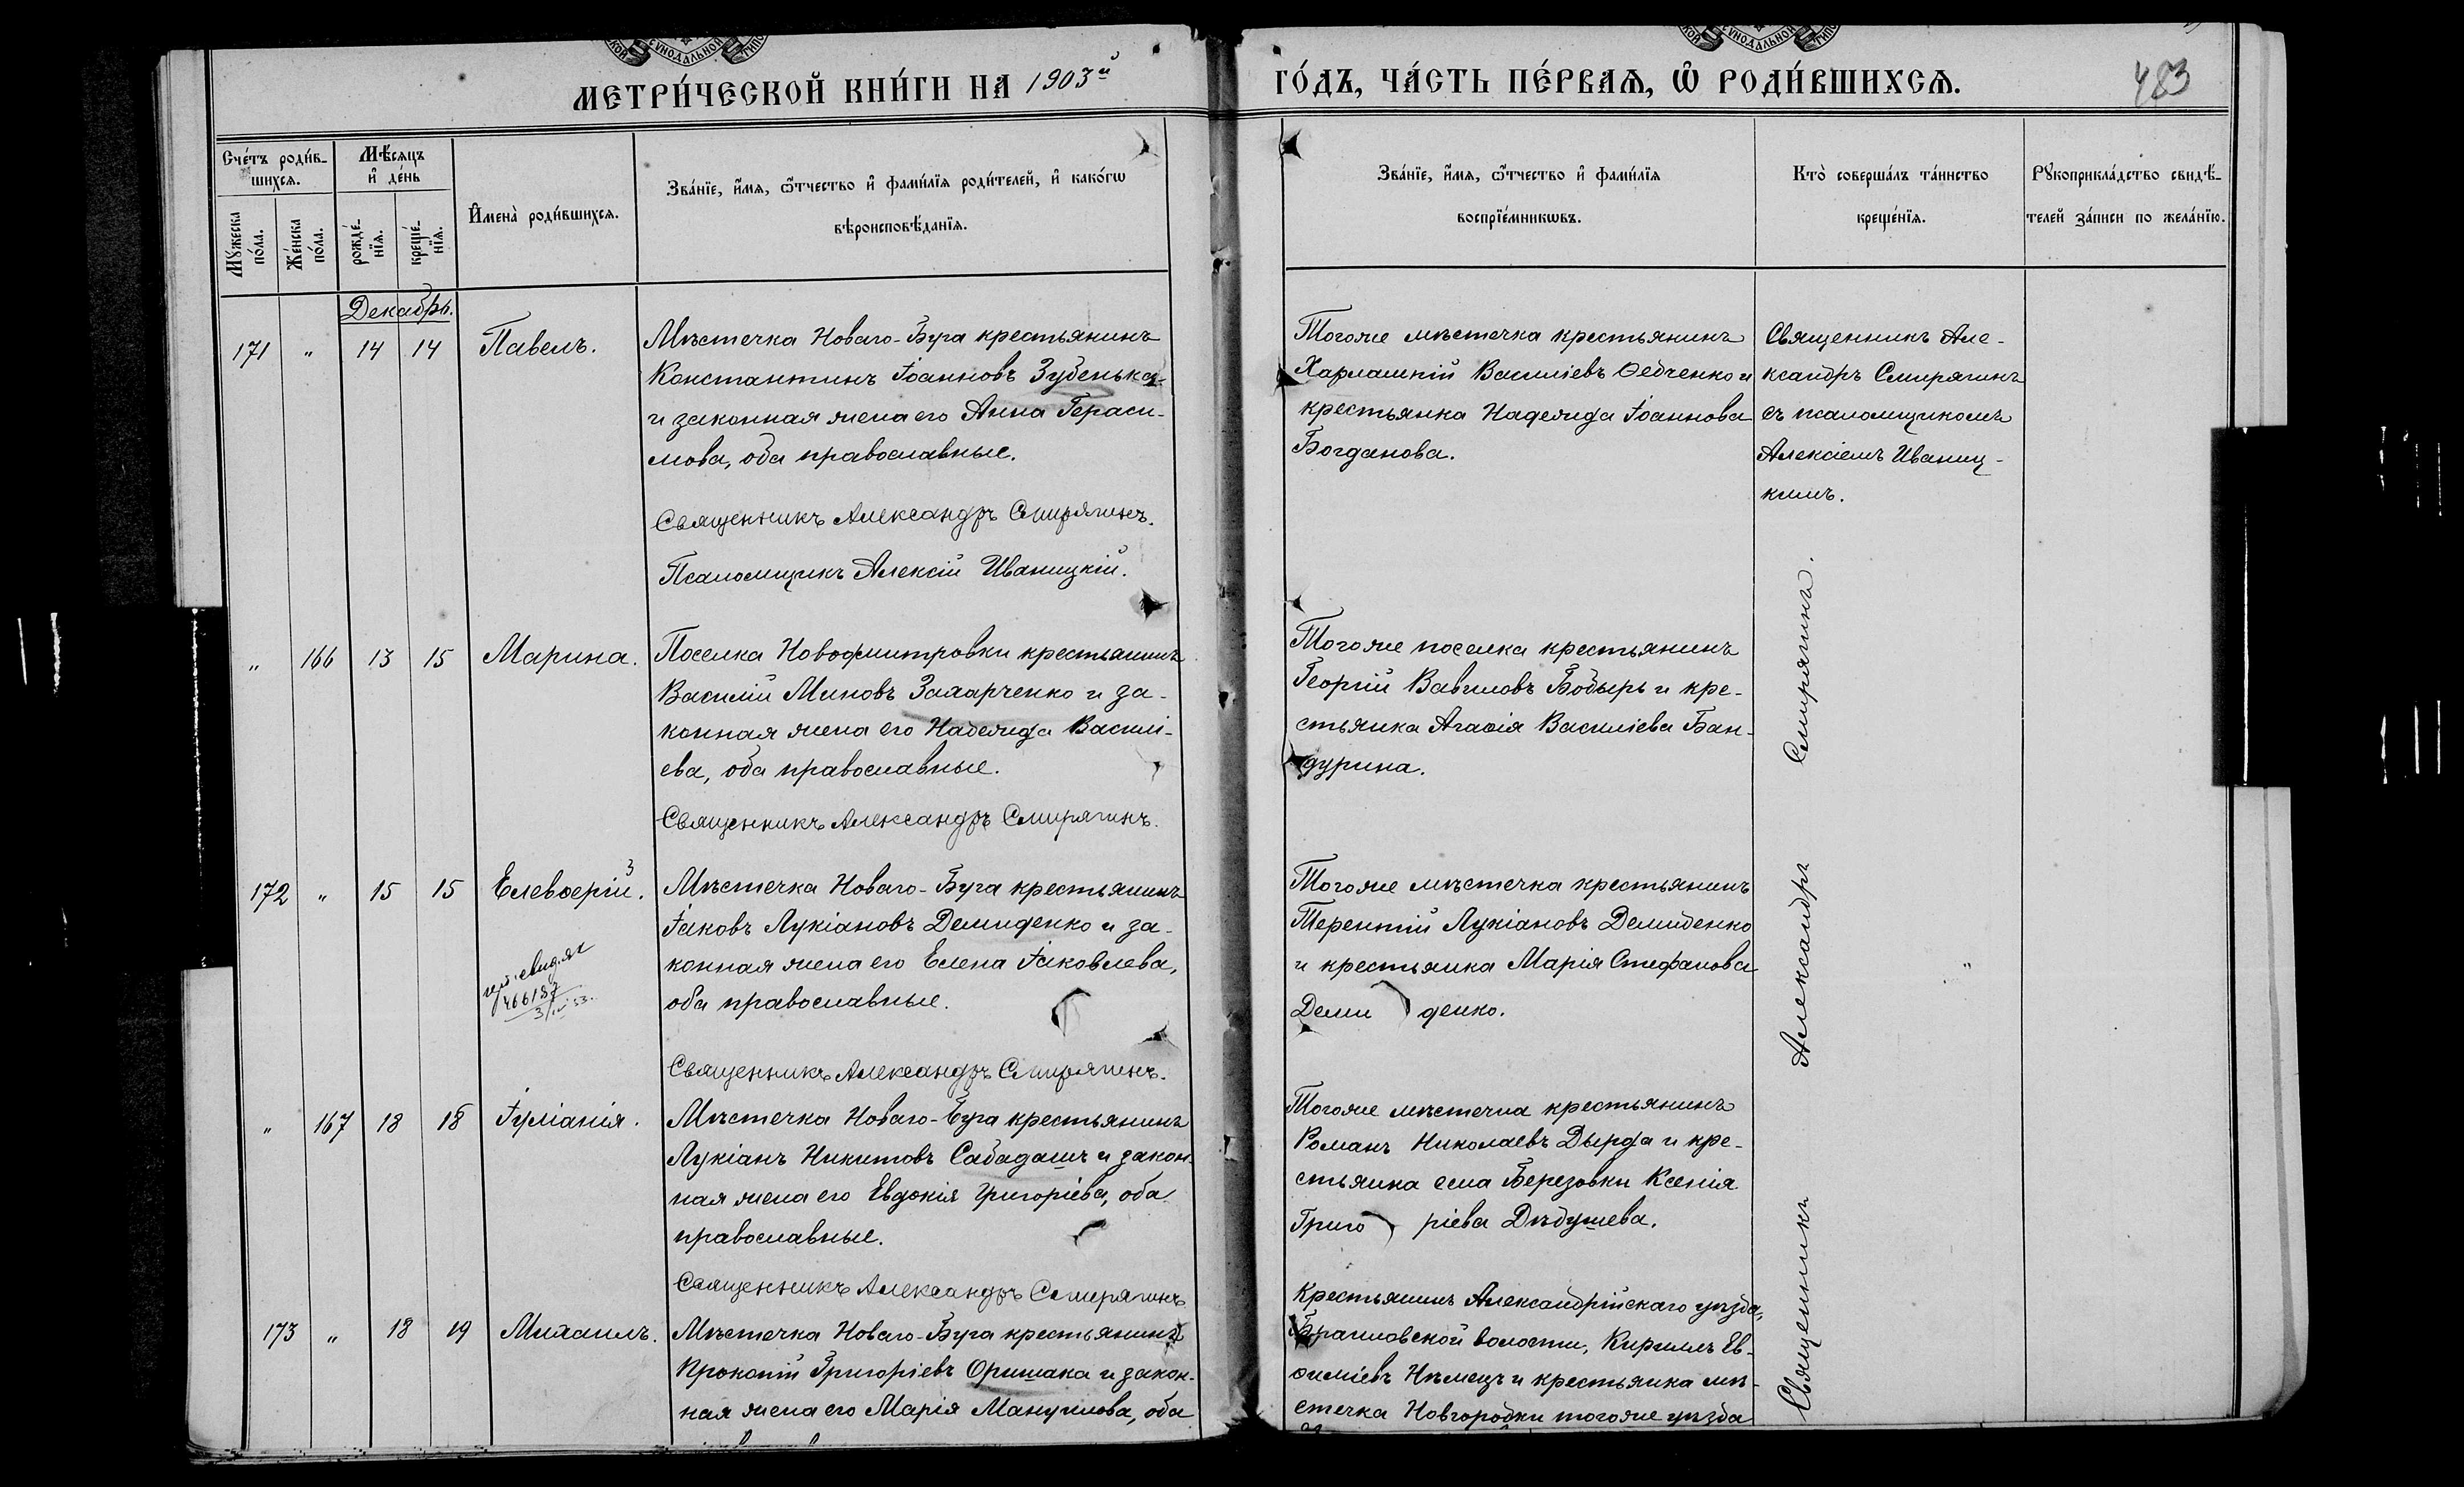 МЕТРИ́ЧЕСКОЙ КНИ́ГИ НА 1903й ГО́ДЪ, ЧА́СТЬ ПЕ́РВАѦ, Ѿ РОДИ́ВШИХСѦ.
483
Сче́тъ роди́в-
шихсѧ.
Мꙋ́жеска по́ла.
Же́нска по́ла.
Мѣ́сѧцъ
и҆ де́нь
рожде́-
нїѧ.
креще́-
нїѧ.
И҆мена̀ роди́вшихсѧ.
Зва́нїе, и҆́мѧ, ѻ҆́тчество и҆ фами́лїѧ роди́телей, и҆ како́гѡ
вѣроисповѣ́данїѧ.
Зва́нїе, и҆́мѧ, ѻ҆́тчество и҆ фами́лїѧ
воспрїе́мникѡвъ.
Кто̀ соверша́лъ та́инство
креще́нїѧ.
Рꙋкоприкла́дство свидѣ́-
телей за́писи по жела́нїю.
Декабрь.
171 " 14 14 Павелъ.
Мѣстечка Новаго-Буга крестьянинъ
Константинъ Іоанновъ Зубенька
и законная жена его Анна Гераси-
мова, оба православные.
Священникъ Александръ Смирягинъ.
Псаломщикъ Алексій Иваницкій.
Тогоже мѣстечка крестьянинъ
Харлампій Василіевъ Ѳедченко и
крестьянка Надежда Іоаннова
Богданова.
Священникъ Але-
ксандръ Смирягинъ
съ псаломщикомъ
Алексіемъ Иваниц-
кимъ.
" 166 13 15 Марина.
Поселка Новодмитровки крестьянинъ
Василій Миновъ Захарченко и за-
конная жена его Надежда Василі-
ева, оба православные.
Священникъ Александръ Смирягинъ.
Тогоже поселка крестьянинъ
Георгій Вавиловъ Бобырь и кре-
стьянка Агаѳія Василіева Бан-
дурина.
172 " 15 15 Елевѳерій.
3
466187
Мѣстечка Новаго-Буга крестьянинъ
Іаковъ Лукіановъ Демиденко и за-
конная жена его Елена Іаковлева,
оба православные.
Священникъ Александръ Смирягинъ.
Тогоже мѣстечка крестьянинъ
Терентій Лукіановъ Демиденко
и крестьянка Марія Стефанова
Деми денко.
" 167 18 18 Іуліанія.
Мѣстечка Новаго-Буга крестьянинъ
Лукіанъ Никитовъ Сабадашъ и закон-
ная жена его Евдокія Григоріева, оба
православные.
Священникъ Александръ Смирягинъ
Тогоже мѣстечка крестьянинъ
Романъ Николаевъ Дырда и кре-
стьянка села Березовки Ксенія
Григо ріева Дѣдушева.
173 " 18 19 Михаилъ.
Мѣстечка Новаго-Буга крестьянинъ
Прокопій Григоріевъ Оришака и закон-
ная жена его Марія Мануилова, оба
Крестьянинъ Александрійскаго уѣзда,
волости, Кириллъ Ев-
ѳиміевъ Нѣмецъ и крестьянка мѣ-
стечка Новгородки тогоже уѣзда
Священникъ Александръ Смирягинъ.